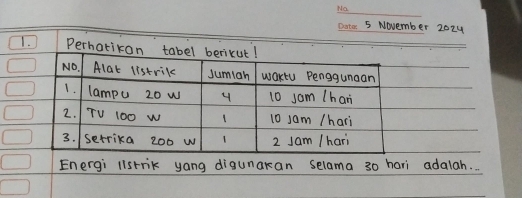 No.
Date: 5 November 2024
1. Perhatikan tabel berikut!
NO. Alat listrik Jumlah waktu Penggunaan
1. lampu 20 W 4 10 Jam / hari
2. TV 100 W 1 10 Jam / hari
3. setrika 200 W 1 2 Jam / hari
Energi listrik yang digunakan selama 30 hari adalah...